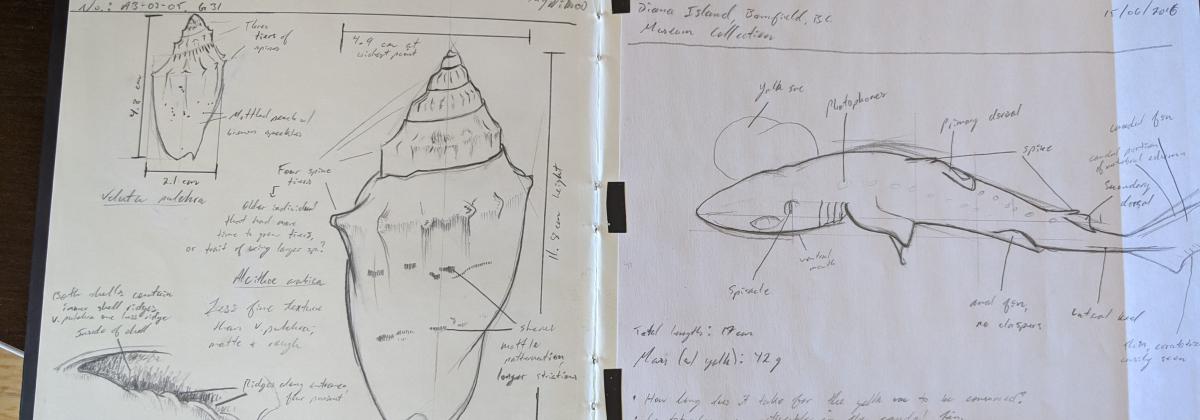 No.: A3-02-05, G31
Three
tiers of
spines
4.8 cm
Mottled peach w/
brown speckles
2.1 cm
Voluta pulchra
4.9 cm at
widest point
11.8 cm height
Four spine
tiers
Older individual
that had more
time to grow tiers,
or trait of being larger sp.?
Alcithoe arabica
Less fine texture
than V. pulchra,
matte & rough
Both shells contain
inner shell ridges,
V. pulchra one less ridge
Inside of shell
Ridges along entrance
flur present
shared
mottle
patternation,
longer striations
Diana Island, Bamfield, BC
Museum Collection
15/06/2016
yolk sac
Photophores
Primary dorsal
spine
caudal fin
caudal portion
of vertebral column
Secondary
dorsal
ventral
mouth
Spiracle
anal fin,
no claspers
lateral keel
easily seen
Total length: 17 cm
Mass (w/ yolk): 42 g
• How long does it take for the yolk sac to be consumed?